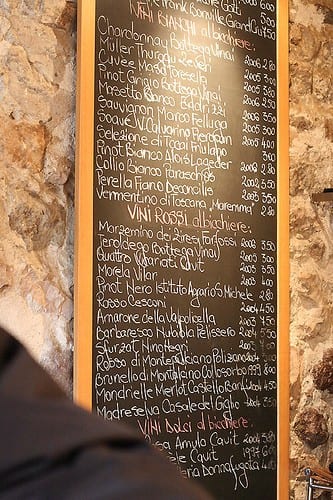 Frank Bonville Grand Cru 450
VINI BIANCHI al bicchiere:
Chardonnay Bottega Vinai 2006 2.80
Müller Thurgau 2005 3.00
Cuvée Maso Toresella 2005
Pinot Grigio Bottega Vinai 2006
Moretto Bianco 2005 3.50
Sauvignon Marco Felluga 2005 3.00
Soave Calvarino Pieropan 4.00
Selezione di Tocai Friulano 3.60
Pinot Bianco Alois Lageder 2006 2.80
Collio Bianco
Perella Fiano 2002 3.50
Vermentino di Toscana "Moremma" 2.80
VINI ROSSI al bicchiere:
Marzemino dei 2006 3.50
Teroldego Bottega Vinai 2004 3.50
Quattro Vicariati Cavit 2003 3.50
Morela Vilar 2003 4.00
Pinot Nero Istituto Agrario S. Michele 2.80
Rosso Cesconi 2004 4.50
Amarone della Valpolicella 2003 4.50
Barbaresco Nubiola Pelissero 2004 4.50
Sfurzat Nino Negri
Rosso di Montepulciano Poliziano
Brunello di Montalcino
Mondrielle Merlot Castello 2004 4.50
Madreselva Casale del Giglio 2004 3.50
VINI Dolci al bicchiere:
Amylo Cavit 2004 3.80
Cavit 1997 6.00
Donnafugata 4.00